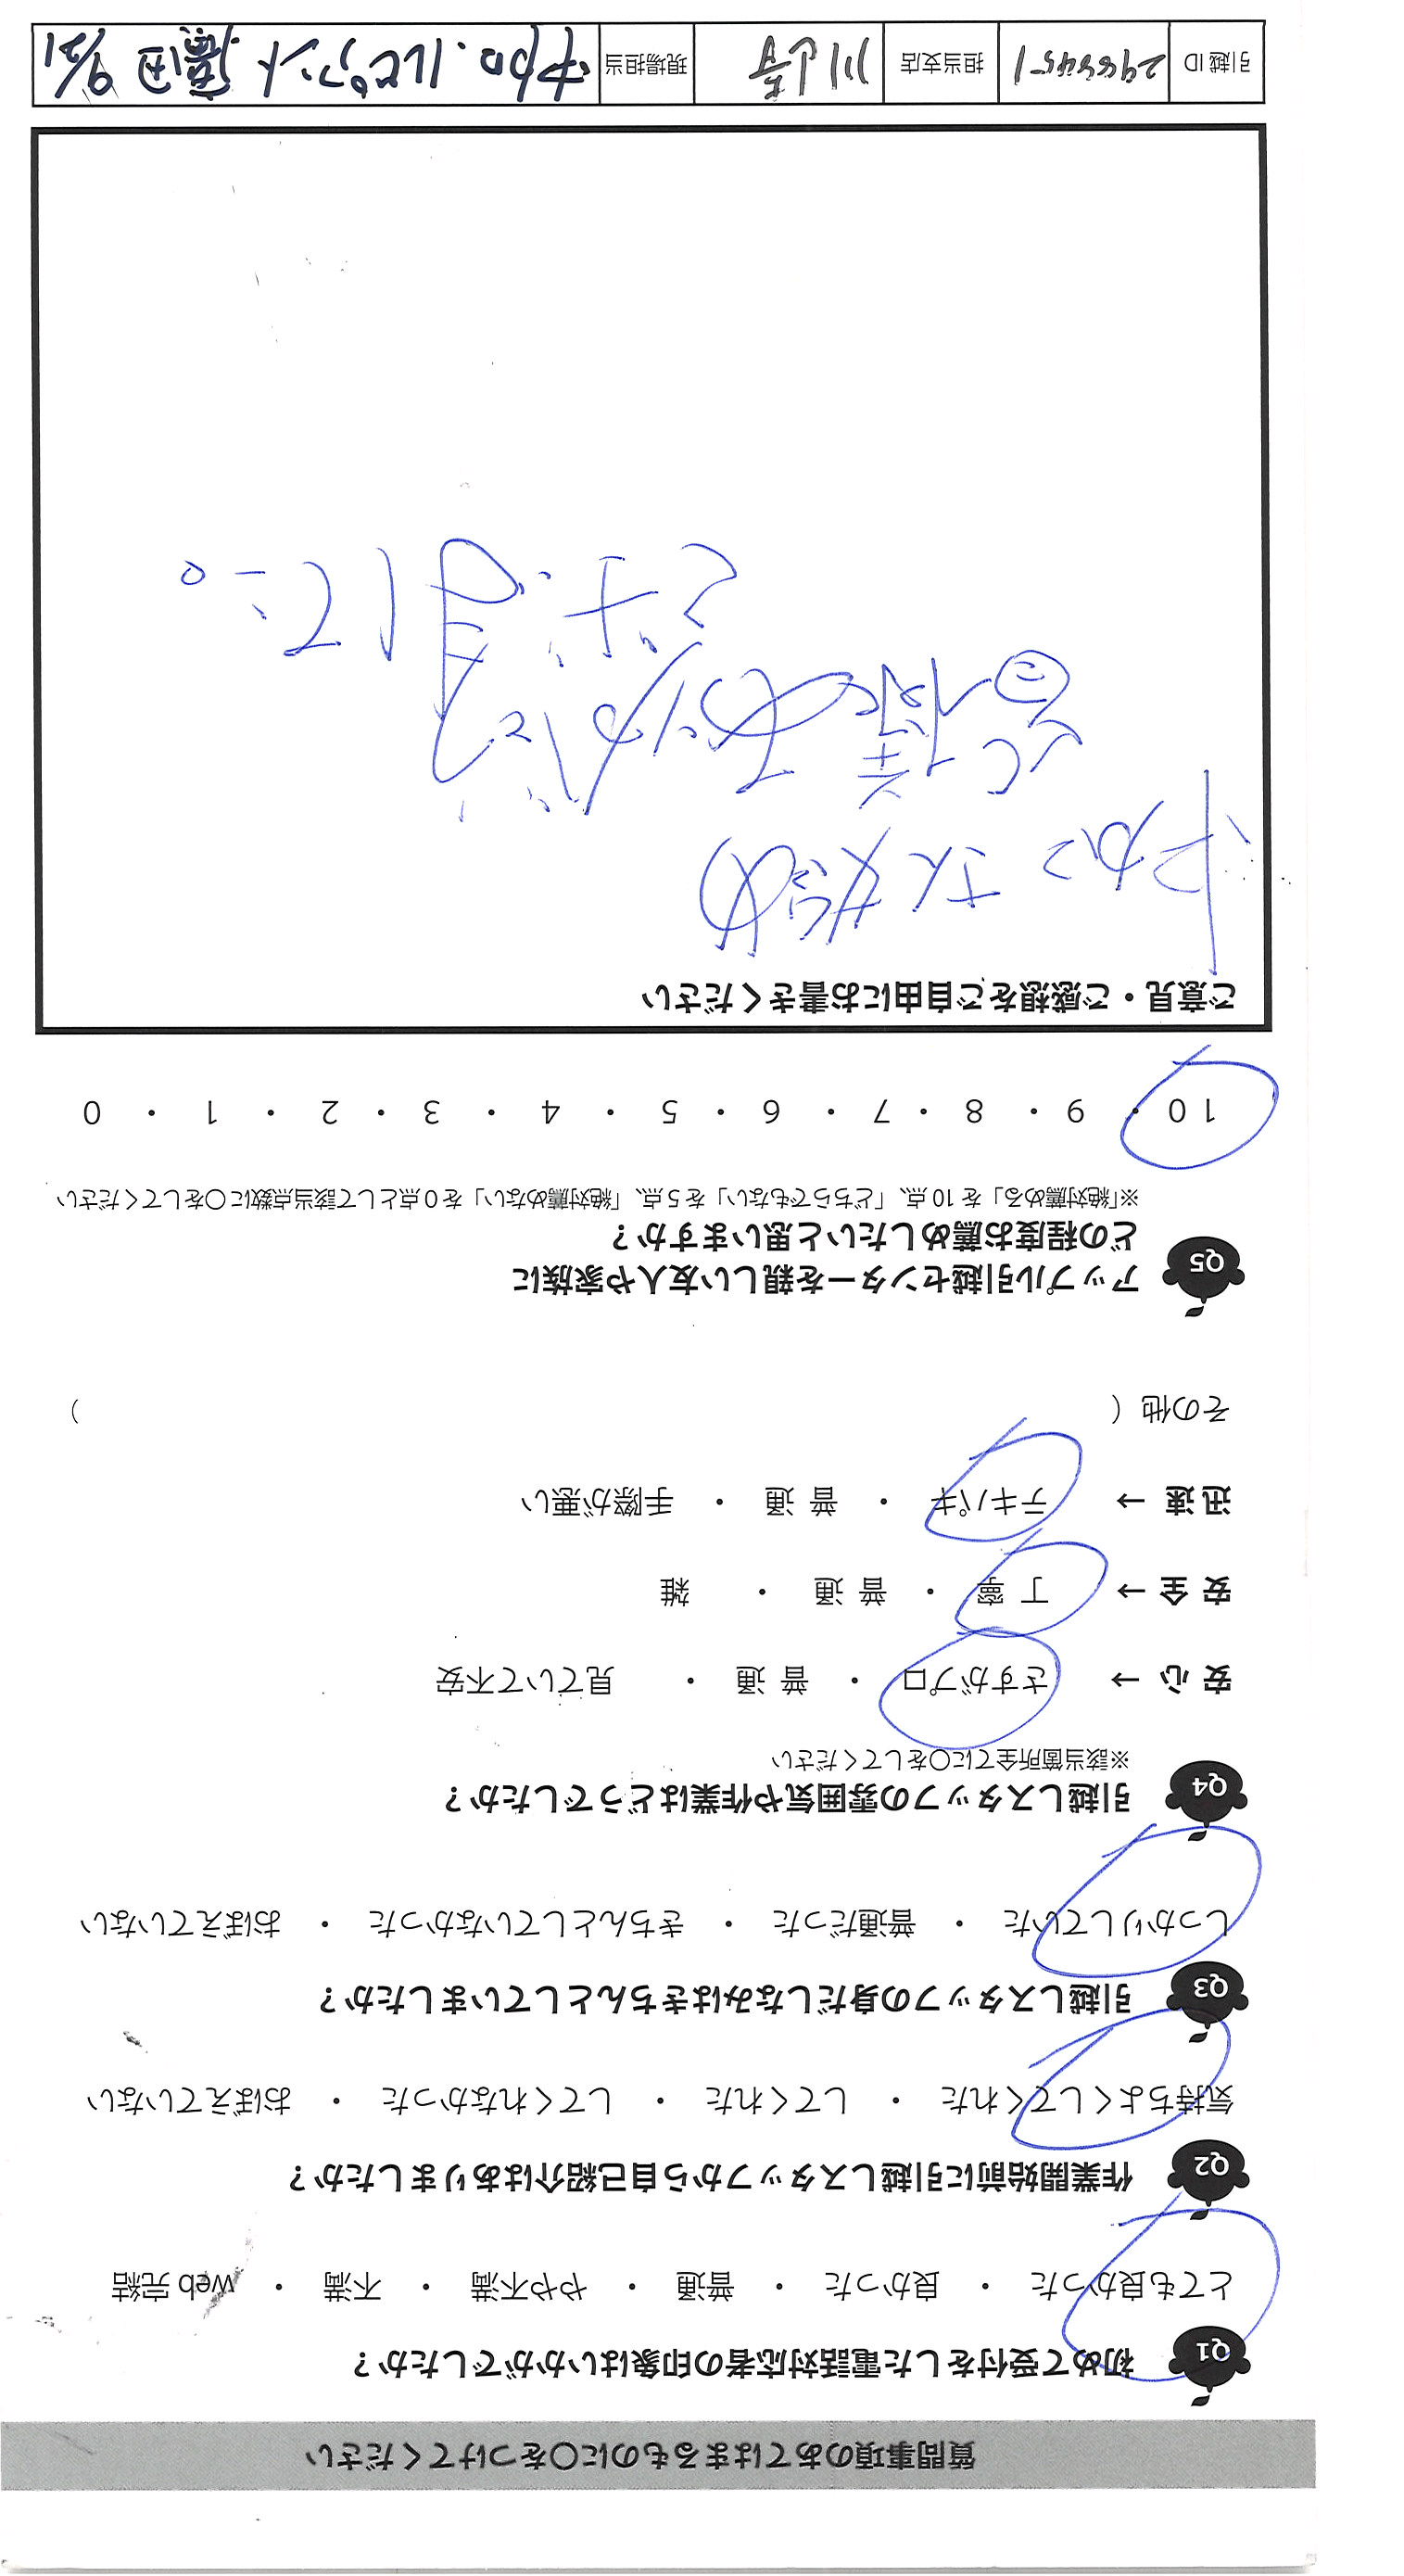 質問事項のあてはまるものに〇をつけてください
Q1 初めて受付をした電話対応者の印象はいかがでしたか？
とても良かった ・ 良かった ・ 普通 ・ やや不満 ・ 不満 ・ web 完結
Q2 作業開始前に引越しスタッフから自己紹介はありましたか？
気持ちよくしてくれた ・ してくれた ・ してくれなかった ・ おぼえていない
Q3 引越しスタッフの身だしなみはきちんとしていましたか？
しっかりしていた ・ 普通だった ・ きちんとしていなかった ・ おぼえていない
Q4 引越しスタッフの雰囲気や作業はどうでしたか？
※該当箇所全てに〇をしてください
安 心 → さすがプロ ・ 普 通 ・ 見ていて不安
安 全 → 丁 寧 ・ 普 通 ・ 雑
迅 速 → テキパキ ・ 普 通 ・ 手際が悪い
その他 （ ）
Q5 アップル引越センターを親しい友人や家族に
どの程度お薦めしたいと思いますか？
※「絶対薦める」を 10 点、「どちらでもない」を 5 点、「絶対薦めない」を 0 点として該当点数に〇をしてください
10 ・ 9 ・ 8 ・ 7 ・ 6 ・ 5 ・ 4 ・ 3 ・ 2 ・ 1 ・ 0
ご意見・ご感想をご自由にお書きください
さんが
引越 ID 担当支店 川崎 現場担当